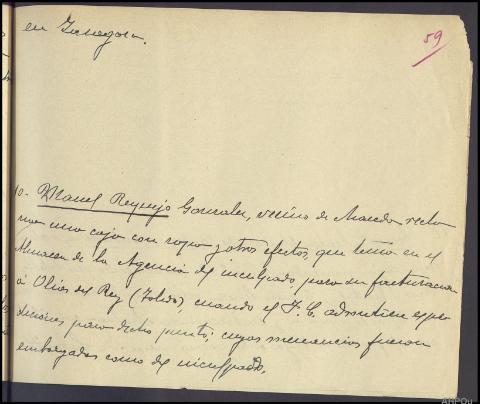 en Zaragoza.
59
10.- Manuel Reguejo Gonzalez, vecino de recla
ma una caja con ropa y otros efectos, que tenia en el
Almacen de la Agencia del inculpado para su facturacion
á Olias del Rey (Toledo), cuando el F. C. admitiera expe
diciones para dicho punto; cuyas mercancias fueron
embargadas como del inculpado.
AHPOu